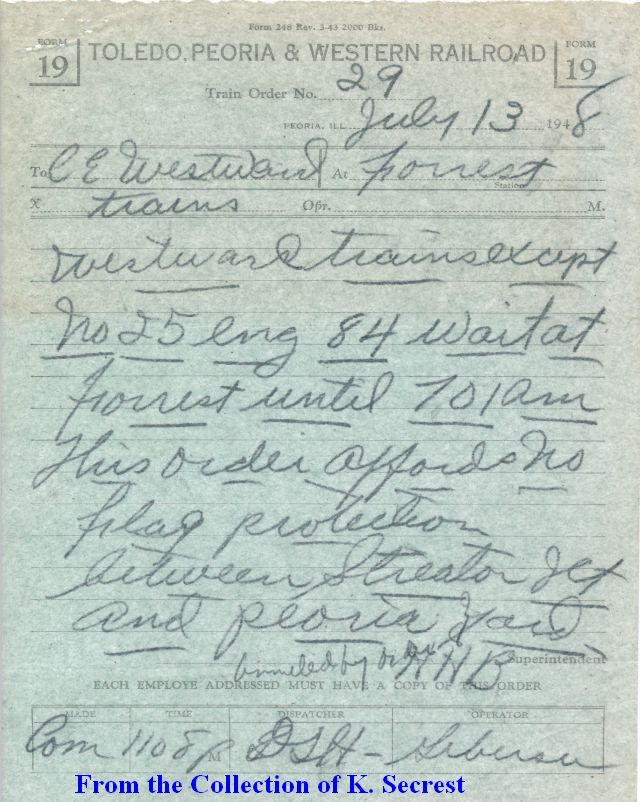 Form 248 Rev. 3-43 2000 Bks.
FORM 19 TOLEDO, PEORIA & WESTERN RAILROAD FORM 19
Train Order No. 29
PEORIA, ILL. July 13 1948
To C E Westward At Forrest
Station
X trains Opr. M.
Westward trains except
No 25 eng 84 wait at
Forrest until 701 am
This order affords no
flag protection
between Streator Jct
and Peoria Yard
by H H B Superintendent
EACH EMPLOYE ADDRESSED MUST HAVE A COPY OF THIS ORDER
MADE TIME DISPATCHER OPERATOR
Com 1108 P M
From the Collection of K. Secrest